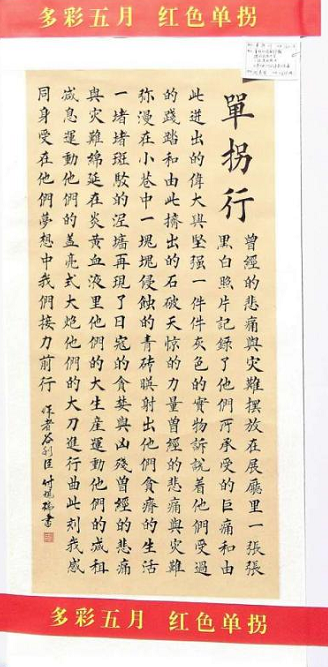 多彩五月 红色单拐
單拐行
曾經的悲痛與灾難擺放在展廳里一張張
黑白照片記録了他們所承受的巨痛和由
此迸出的偉大與堅强一件件灰色的實物訴説着他們受過
的踐踏和由此擠出的石破天惊的力量曾經的悲痛與灾難
弥漫在小巷中一塊塊侵蝕的青砖暎射出他們貧瘠的生活
一堵堵斑駁的涅墙再現了日寇的貪婪與凶殘曾經的悲痛
與灾難綿延在炎黄血液里他們的大生産運動他們的减租
减息運動他們的盖亮式大炮他們的大刀進行曲此刻我感
同身受在他們夢想中我們接力前行
作者
書
多彩五月 红色单拐